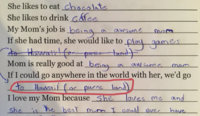 She likes to eat chocolate
She likes to drink coffee
My Mom's job is being a awsome mom
If she had time, she would like to play games
to Hawaii (or paris land)
Mom is really good at being a awsome mom
If I could go anywhere in the world with her, we'd go
to Hawaii (or paris land)
I love my Mom because she loves me and
she is the best mom I could ever have